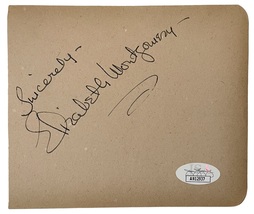 Sincerely-
Elizabeth Montgomery-